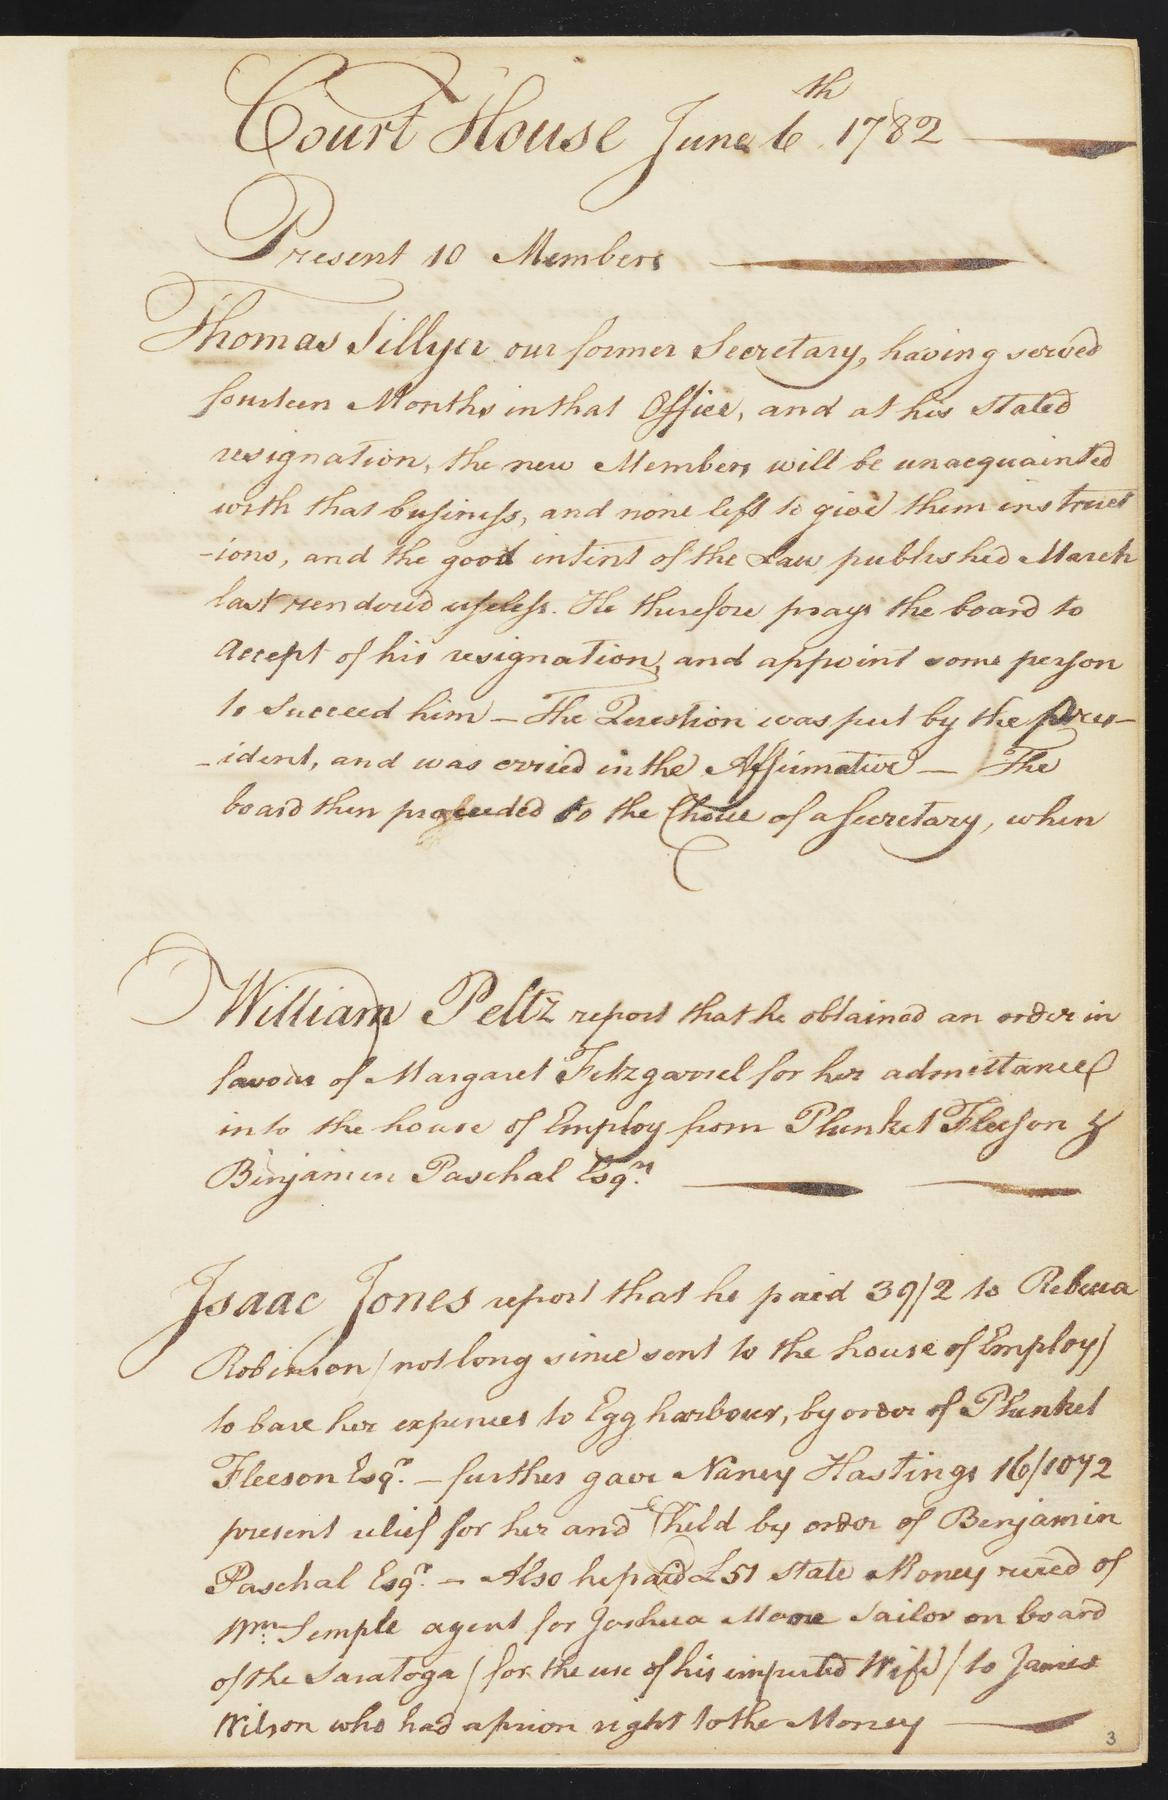 Court House June 6th 1782
Present 10 Members
Thomas Tillyer our former Secretary, having served
fourteen Months in that Office, and at his stated
resignation, the new Members will be unacquainted
with that business, and none left to give them instruct
-ions, and the good intent of the Law published March
last rendered useless. He therefore prays the board to
accept of his resignation, and appoint some person
to Succeed him – The Question was put by the pres–
-ident, and was carried in the Affirmative – The
board then proceeded to the Choice of a Secretary, when
William Peltz report that he obtained an order in
favour of Margaret Fitzgarrel for her admittance
into the house of Employ from Plunket Fleeson &
Binjamin Paschal Esqrs
Isaac Jones report that he paid 39/2 to Rebecca
Robinson (not long since sent to the house of Employ)
to bare her expences to Egg harbour, by order of Plunket
Fleeson Esqr. – further gave Nancy Hastings 16/10½
present relief for her and Child by order of Benjamin
Paschal Esqr. – Also he paid £51 state Money recied of
Wm. Semple agent for Joshua Moore Sailor on board
of the Saratoga (for the use of his imputed Wife) to James
Wilson who had a prior right to the Money
3